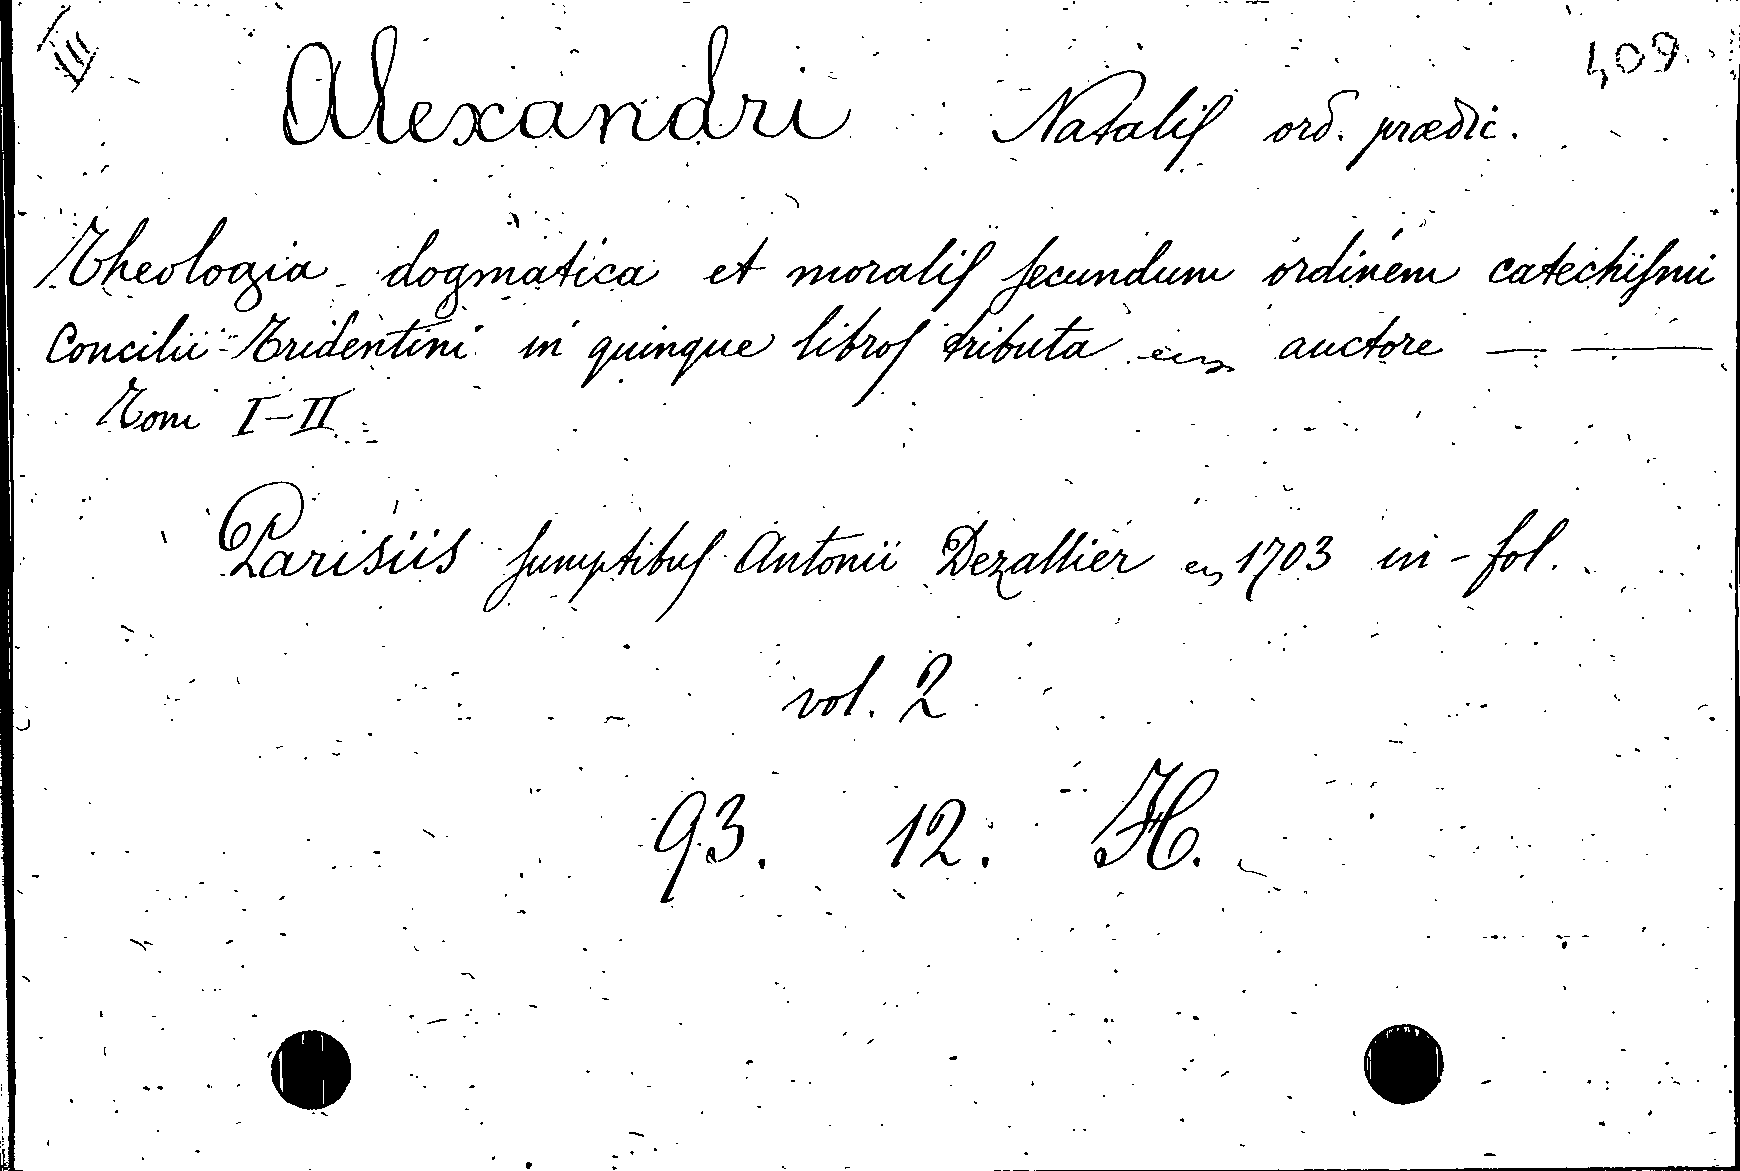 III 409
Alexandri Natalis ord. prædic.
Theologia dogmatica et moralis secundum ordinem catechismi
Concilii Tridentini in quinque libros tributa auctore — —
Tom I-II
Parisiis sumptibus Antonii Dezallier 1703 in-fol.
vol. 2
93. 12. H.